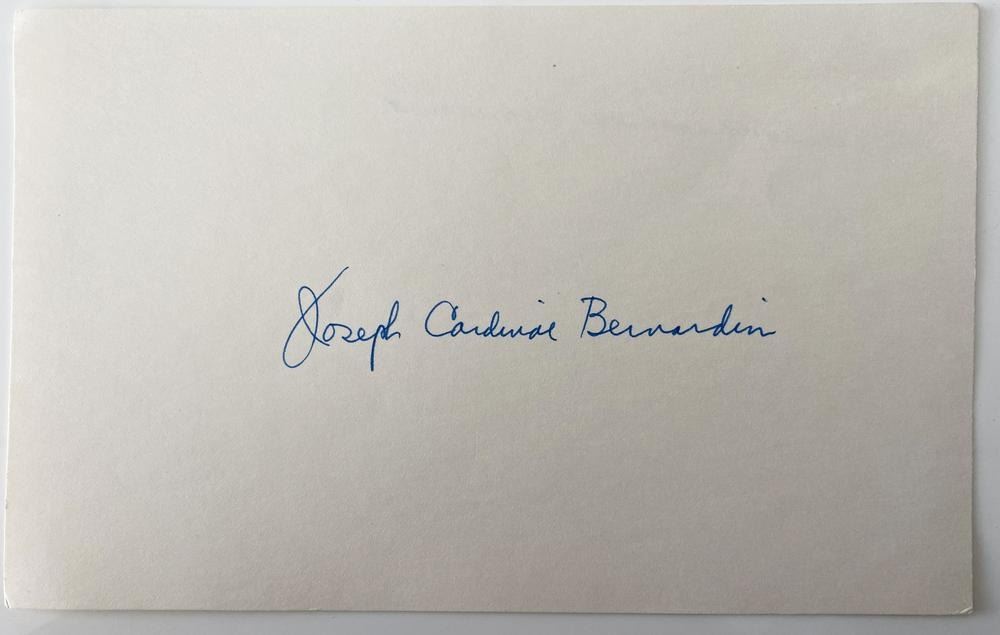 Joseph Cardinal Bernardin